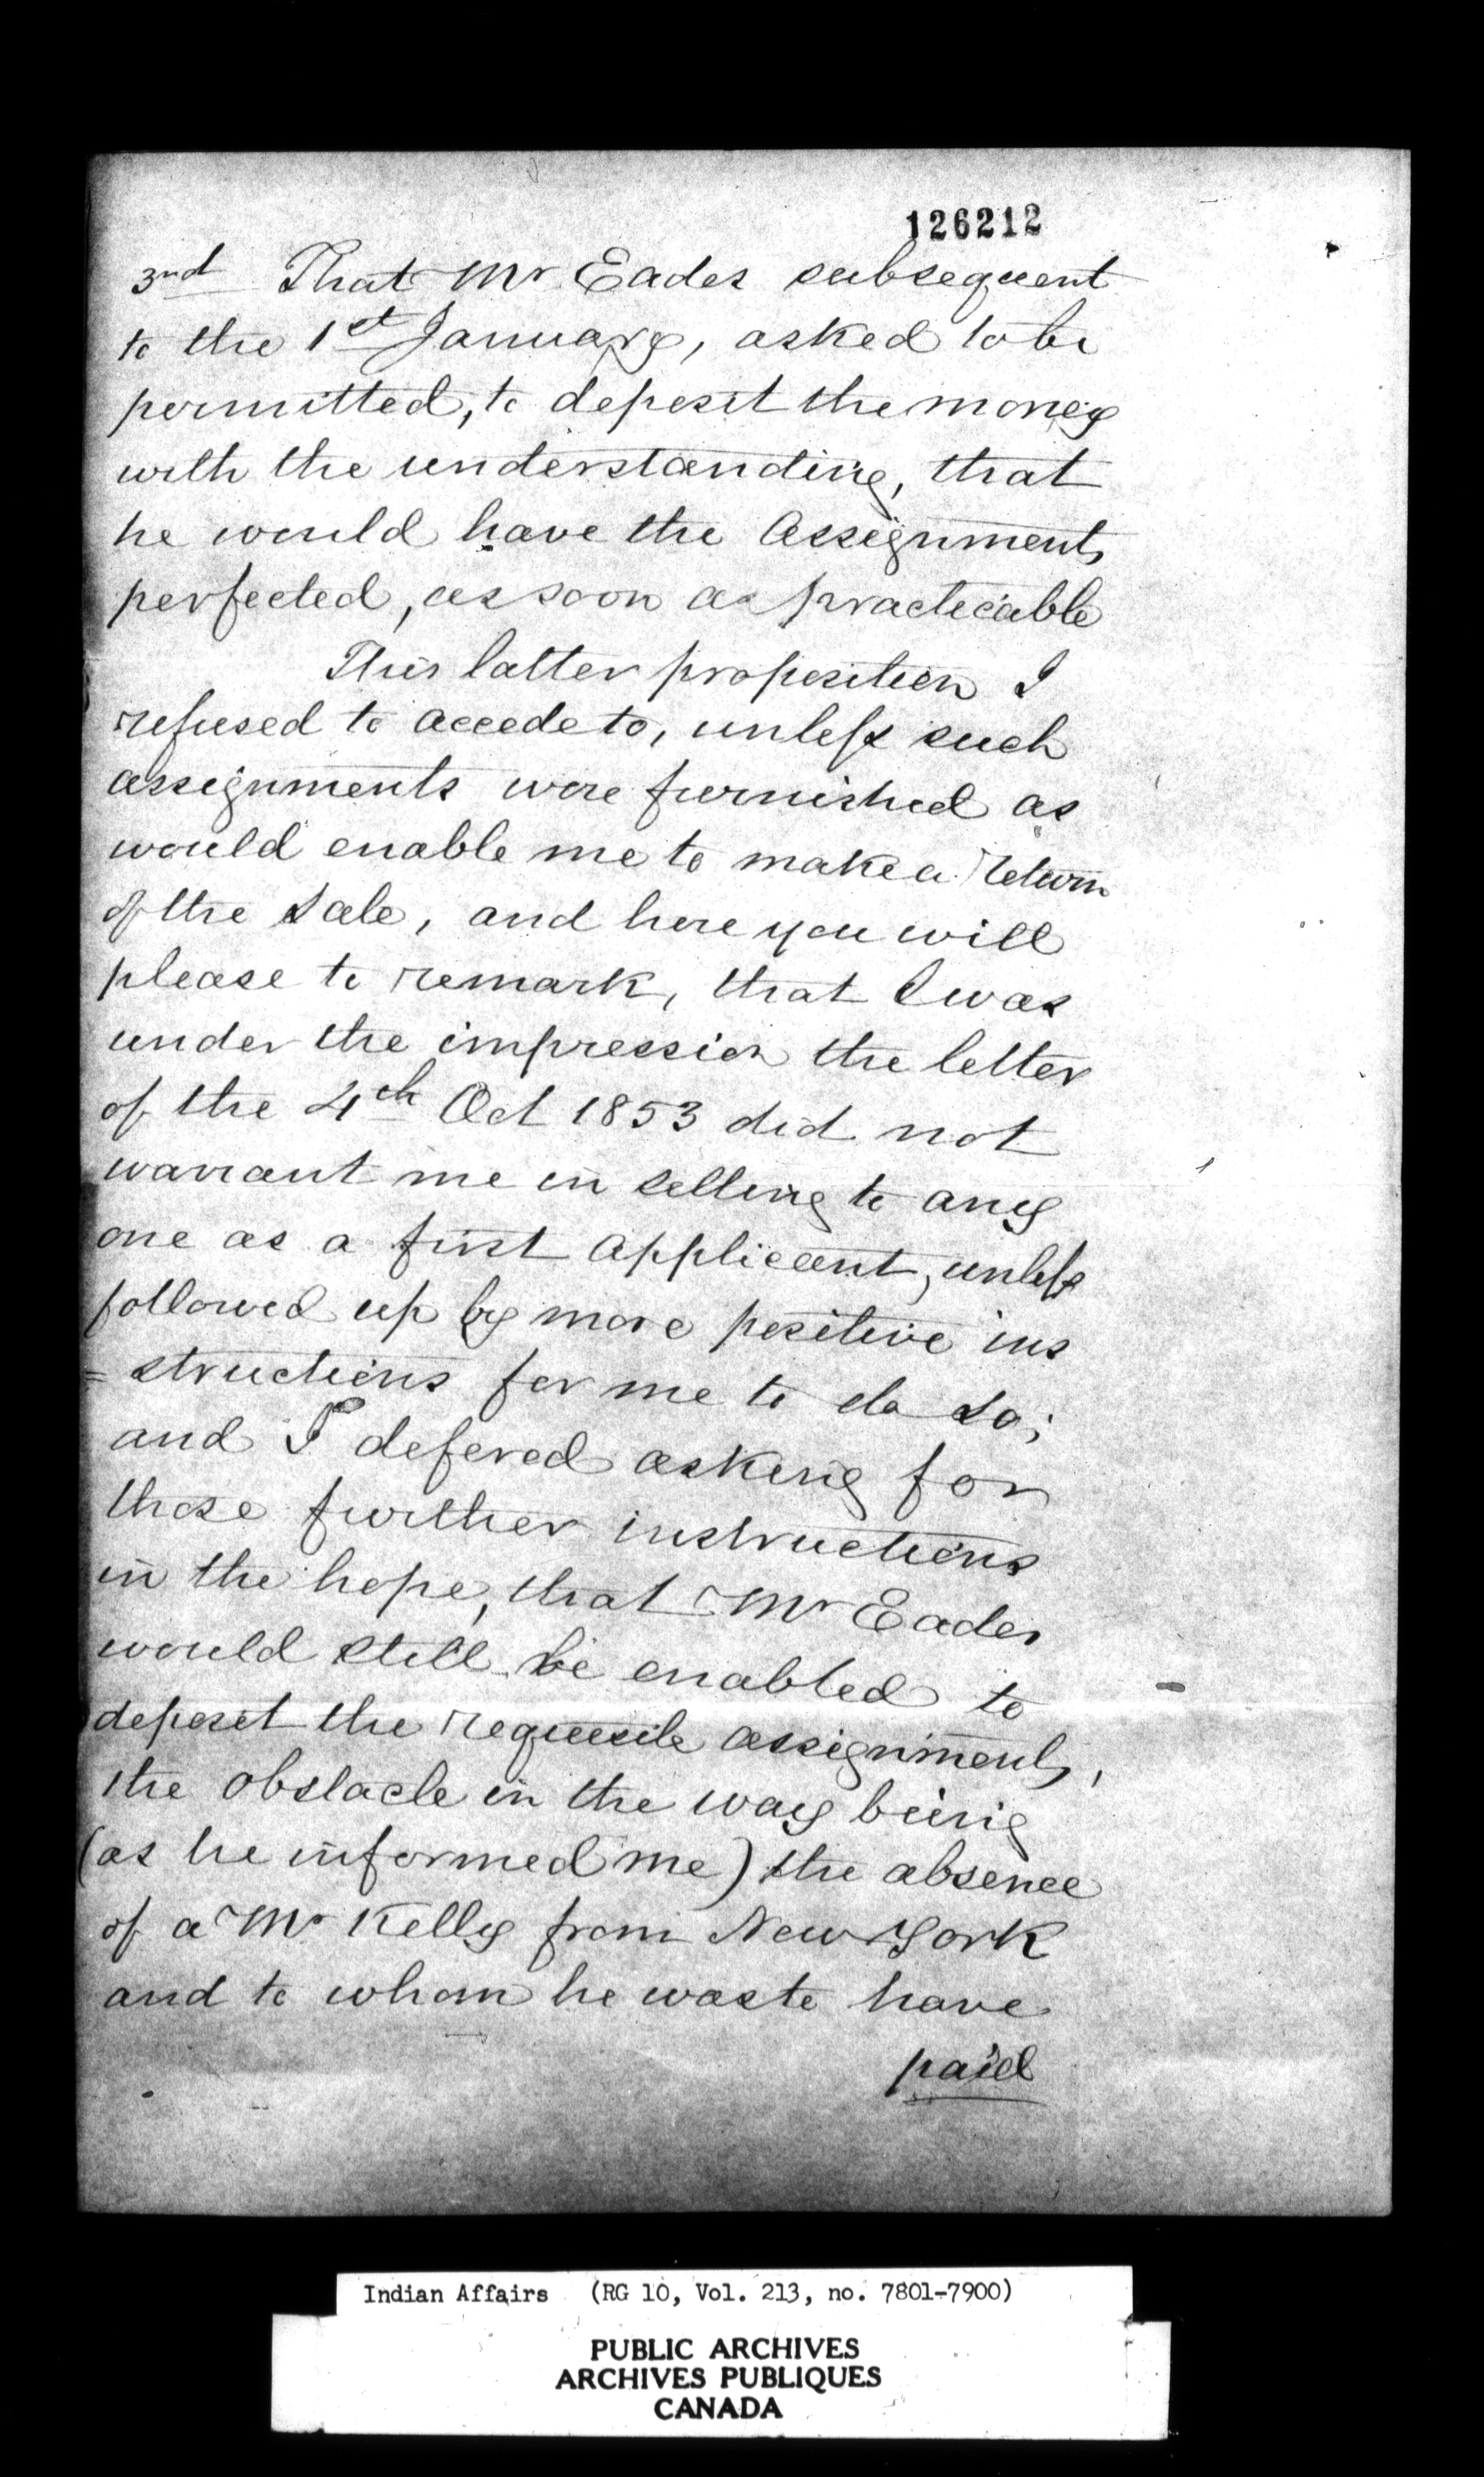 126212
3nd That Mr Eades subsequent
to the 1st January, asked to be
permitted, to deposit the money
with the understanding, that
he would have the Assignments
perfected, as soon as practicable
This latter proposition I
refused to accede to, unless such
assignments were furnished as
would enable me to make a return
of the Sale, and here you will
please to remark, that I was
under the impression the letter
of the 4th Oct 1853 did not
warrant me in selling to any
one as a first applicant, unless
followed up by more positive ins
=structions for me to do so;
and I defered asking for
those further instructions
in the hope, that Mr Eades
would still be enabled to
deposit the requisite assignments,
the obstacle in the way being
(as he informed me) the absence
of a Mr Kelly from New York
and to whom he was to have
paid
Indian Affairs (RG 10, Vol. 213, no. 7801-7900)
PUBLIC ARCHIVES
ARCHIVES PUBLIQUES
CANADA